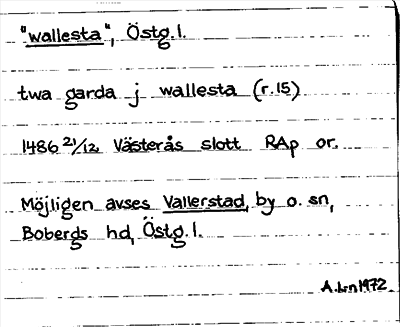 "wallesta", Östg.l.
twa garda j wallesta (r.15)
1486 21/12 Västerås slott RAp or.
Möjligen avses Vallerstad, by o. sn,
Bobergs hd, Östg.l.
A.L-n 1972